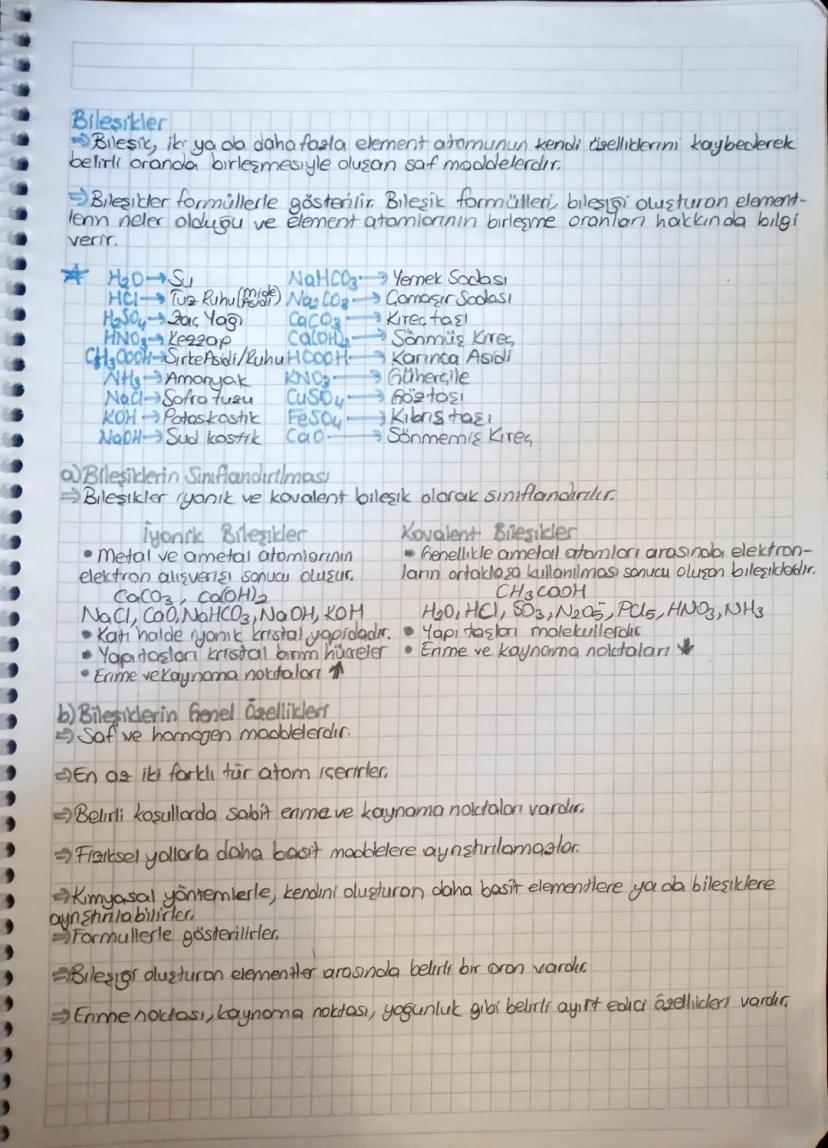 Bileşikler
⇒Bileşik, iki ya da daha fazla element atomunun kendi özelliklerini kaybederek
belirli oranda birleşmesiyle oluşan saf maddelerdir.
⇒Bileşikler formüllerle gösterilir. Bileşik formülleri, bileşiği oluşturan element-
lerin neler olduğu ve element atomlarının birleşme oranları hakkında bilgi
verir.
★ H₂O→Su NaHCO₃→Yemek Sodası
HCl→Tuz Ruhu(Mide Asidi) Na₂CO₃→Çamaşır Sodası
H₂SO₄→Zaç Yağı CaCO₃→Kireçtaşı
HNO₃→Kezzap Ca(OH)₂→Sönmüş Kireç
CH₃COOH→Sirke Asidi/Ruhu HCOOH→Karınca Asidi
NH₃→Amonyak KNO₃→Güherçile
NaCl→Sofra tuzu CuSO₄→Göztaşı
KOH→Potaskostik FeSO₄→Kıbrıs taşı
NaOH→Sud kostik CaO→Sönmemiş Kireç
a)Bileşiklerin Sınıflandırılması
⇒Bileşikler iyonik ve kovalent bileşik olarak sınıflandırılır.
İyonik Bileşikler
• Metal ve ametal atomlarının
elektron alışverişi sonucu oluşur.
CaCO₃, Ca(OH)₂
NaCl, CaO, NaHCO₃, NaOH, KOH
• Katı halde iyonik kristal yapıdadır.
• Yapıtaşları kristal birim hücreler
• Erime ve Kaynama noktaları ↑
Kovalent Bileşikler
• Genellikle ametall atomları arasında elektron-
ların ortaklaşa kullanılması sonucu oluşan bileşiklerdir.
CH₃COOH
H₂O, HCl, SO₃, N₂O₅, PCl₅, HNO₃, NH₃
• Yapı taşları moleküllerdir
• Erime ve kaynama noktaları ↓
b)Bileşiklerin Genel Özellikleri
⇒ Saf ve homogen maddelerdir.
⇒En az iki farklı tür atom içerirler.
⇒Belirli koşullarda sabit erime ve kaynama noktaları vardır.
⇒Fiziksel yollarla daha basit maddelere ayrıştırılamazlar.
⇒Kimyasal yöntemlerle, kendini oluşturan daha basit elementlere ya da bileşiklere
ayrıştırılabilirler.
⇒Formüllerle gösterilirler.
⇒Bileşiği oluşturan elementler arasında belirli bir oran vardır
⇒Erime noktası, kaynama noktası, yoğunluk gibi belirli ayırt edici özellikleri vardır.